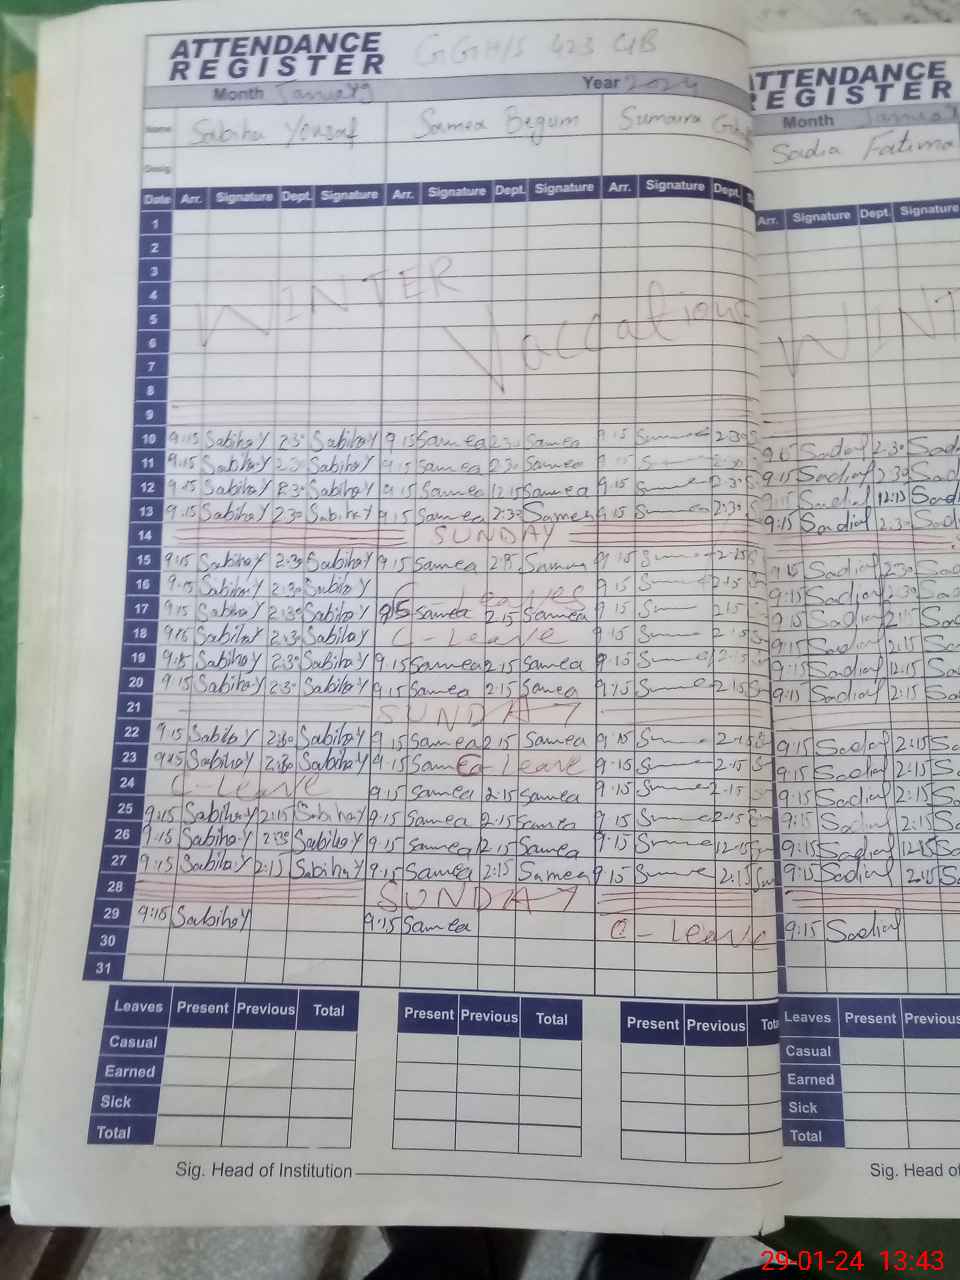 ATTENDANCE REGISTER GGHS 423 GB
Month January Year 2024
Name Sabiha Yousaf Samea Begum Sumaira
Desig.
Date Arr. Signature Dept. Signature Arr. Signature Dept. Signature Arr. Signature Dept.
1
2
3
4
5
6
7
8
9
WINTER Vaccations
10 9:15 SabihaY 2:30 SabihaY 9:15 Samea 2:30 Samea 9:15 2:30
11 9:15 SabihaY 2:30 SabihaY 9:15 Samea 2:30 Samea
12 9:15 SabihaY 2:30 SabihaY 9:15 Samea 12:15 Samea 9:15 2:30
13 9:15 SabihaY 2:30 SabihaY 9:15 Samea 2:30 Samea 9:15 12:30
14 SUNDAY
15 9:15 SabihaY 2:30 SabihaY 9:15 Samea 9:15 2:15
16 9:15 SabihaY 2:30 SabihaY C Leaves 9:15 2:15
17 9:15 SabihaY 2:30 SabihaY 9:15 Samea 2:15 Samea 9:15 2:15
18 9:15 SabihaY 2:30 SabihaY C-Leave 9:15 2:15
19 9:15 SabihaY 2:30 SabihaY 9:15 Samea 2:15 Samea 9:15 2:15
20 9:15 SabihaY 2:30 SabihaY 9:15 Samea 2:15 Samea 9:15 2:15
21 SUNDAY
22 9:15 SabihaY 2:30 SabihaY 9:15 Samea 2:15 Samea 9:15 2:15
23 9:15 SabihaY 2:30 SabihaY 9:15 Samea C-Leave 9:15 2:15
24 C-Leave 9:15 Samea 2:15 Samea 9:15 2:15
25 9:15 SabihaY 2:15 SabihaY 9:15 Samea 2:15 Samea 9:15 2:15
26 9:15 SabihaY 2:30 SabihaY 9:15 Samea 12:15 Samea 9:15 12:15
27 9:15 SabihaY 2:15 SabihaY 9:15 Samea 2:15 Samea 9:15 2:15
28 SUNDAY
29 9:15 SabihaY 9:15 Samea C-Leave
30
31
Leaves Present Previous Total Present Previous Total Present Previous
Casual
Earned
Sick
Total
Sig. Head of Institution
ATTENDANCE
REGISTER
Month January
Sadia Fatima
Arr. Signature Dept. Signature
WINT
9:15 2:30
9:15 2:30
9:15 12:15
9:15 2:30
9:15 2:30
9:15 2:30
9:15
9:15 2:15
9:15 12:15
9:15 2:15
9:15 2:15
9:15 2:15
9:15 2:15
9:15 2:15
9:15 12:15
9:15 2:15
9:15
Leaves Present Previous
Casual
Earned
Sick
Total
Sig. Head of
29-01-24 13:43